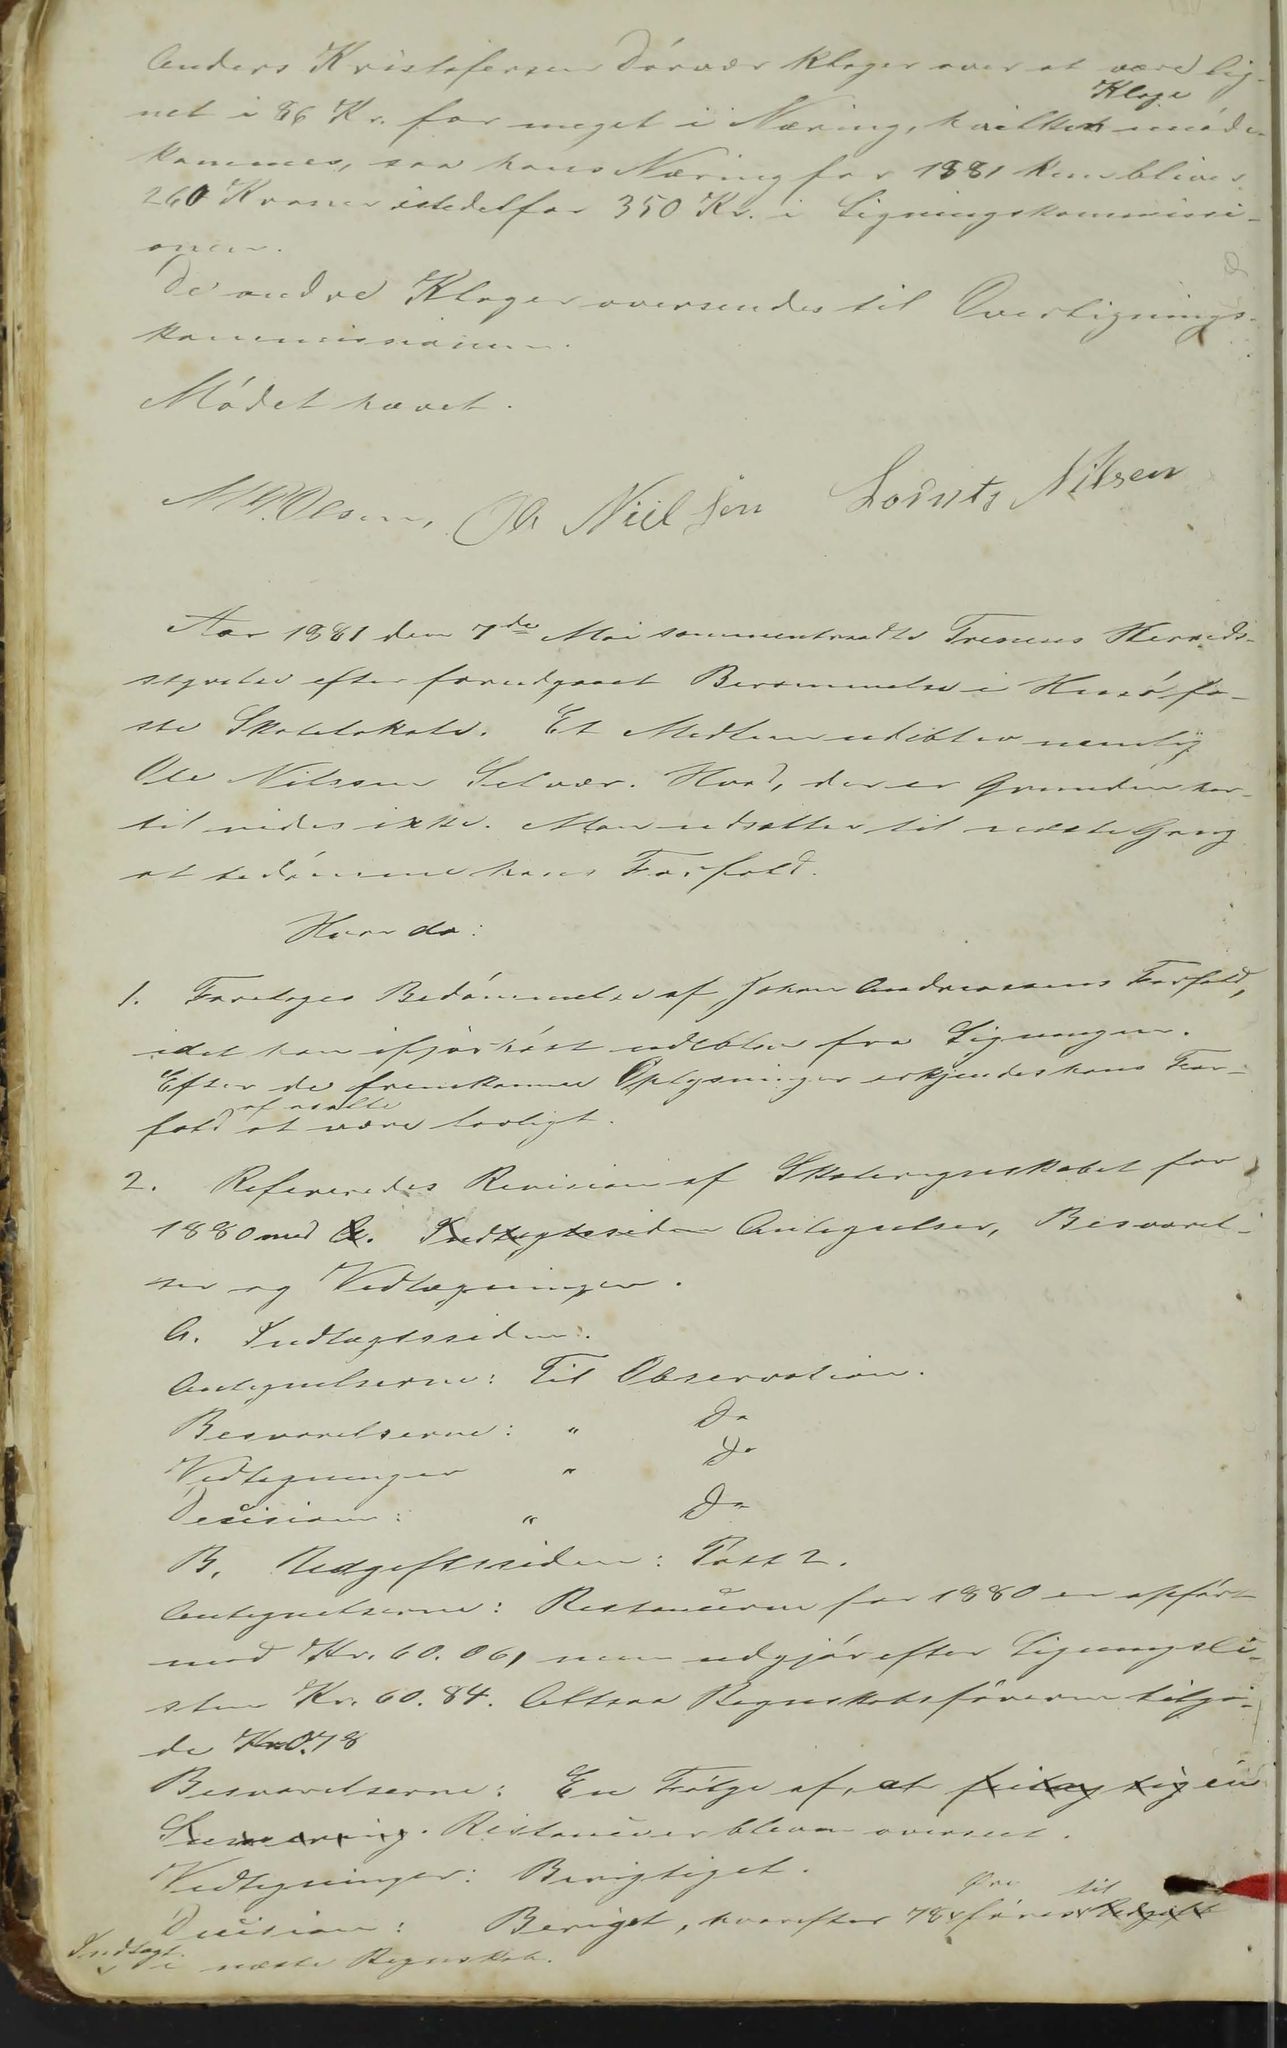 Anders Kristofersen Dörvær klager over at være lig-
net i 86 Kr. for meget i Næring, hvilken Klage imöde-
kommes, saa hans Næring for 1881 kun bliver
260 Kroner istedetfor 350 Kr. i Ligningskommissi-
onen.
De andre Klager oversendes til Overlignings-
kommissionen.
Mödet hævet.
Olsen, Ole Nielsen Lornts Nilsen
Aar 1881 den 7de Mai sammentraadte Trænens Herreds-
styrelse efter foregaaet Berammelse i Husö fa-
ste Skolelokale. Et Medlem udeblev nemlig
Ole Nilssen Selvær. Hvad, der er Grunden her-
til vides ikke. Man udsætter til næste Gang
at bedömme hans Forfald.
Hvor da:
1. Foretages Bedömmelse af Johan Andreassens Forfald,
idet han ifjor höst udeblev fra Ligningen.
Efter de fremkomne Oplysninger erkjendes hans For-
fald af alle at være lovligt.
2. Refereredes Revision af Skoleregnskabet for
1880 med A. Indtægtssiden Antegnelser, Besvarel-
ser og Vedtegninger.
A. Indtægtssiden.
Antegnelserne: Til Observation.
Besvarelserne: " Do
Vedtegninger " Do
Decision: " Do
B. Udgiftssiden: Post 2.
Antegnelserne: Restancerne for 1880 er opfört
med Kr. 60.06, men udgjör efter Ligningsli-
sten Kr. 60.84. Altsaa Regnskabsföreren tilgo-
de Kr. 0.78
Besvarelserne: En Fölge af, at en
Summering. Restancer bleven overseet.
Vedtegninger: Berigtiget.
Decision: Beriget, hvorefter 78 Öre föres til Udgift
Indtægt i næste Regnskab.